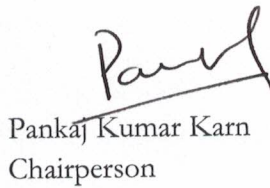 Pankaj Kumar Karn
Chairperson